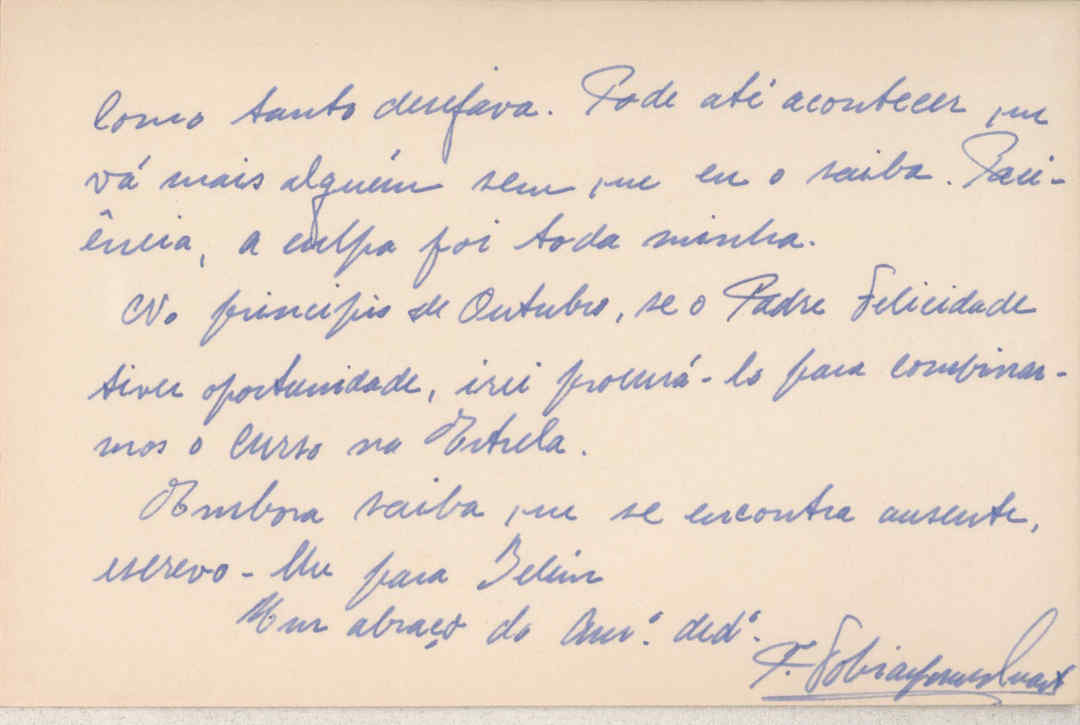 Como tanto desejava. Pode até acontecer que
vá mais alguém sem que eu o saiba. Paci-
ência, a culpa foi toda minha.
No princípio de Outubro, se o Padre Felicidade
tiver oportunidade, irei procurá-lo para combinar-
mos o curso na Estrela.
Embora saiba que se encontra ausente,
escrevo-lhe para Belém
Um abraço do Amº. dedº.
F.